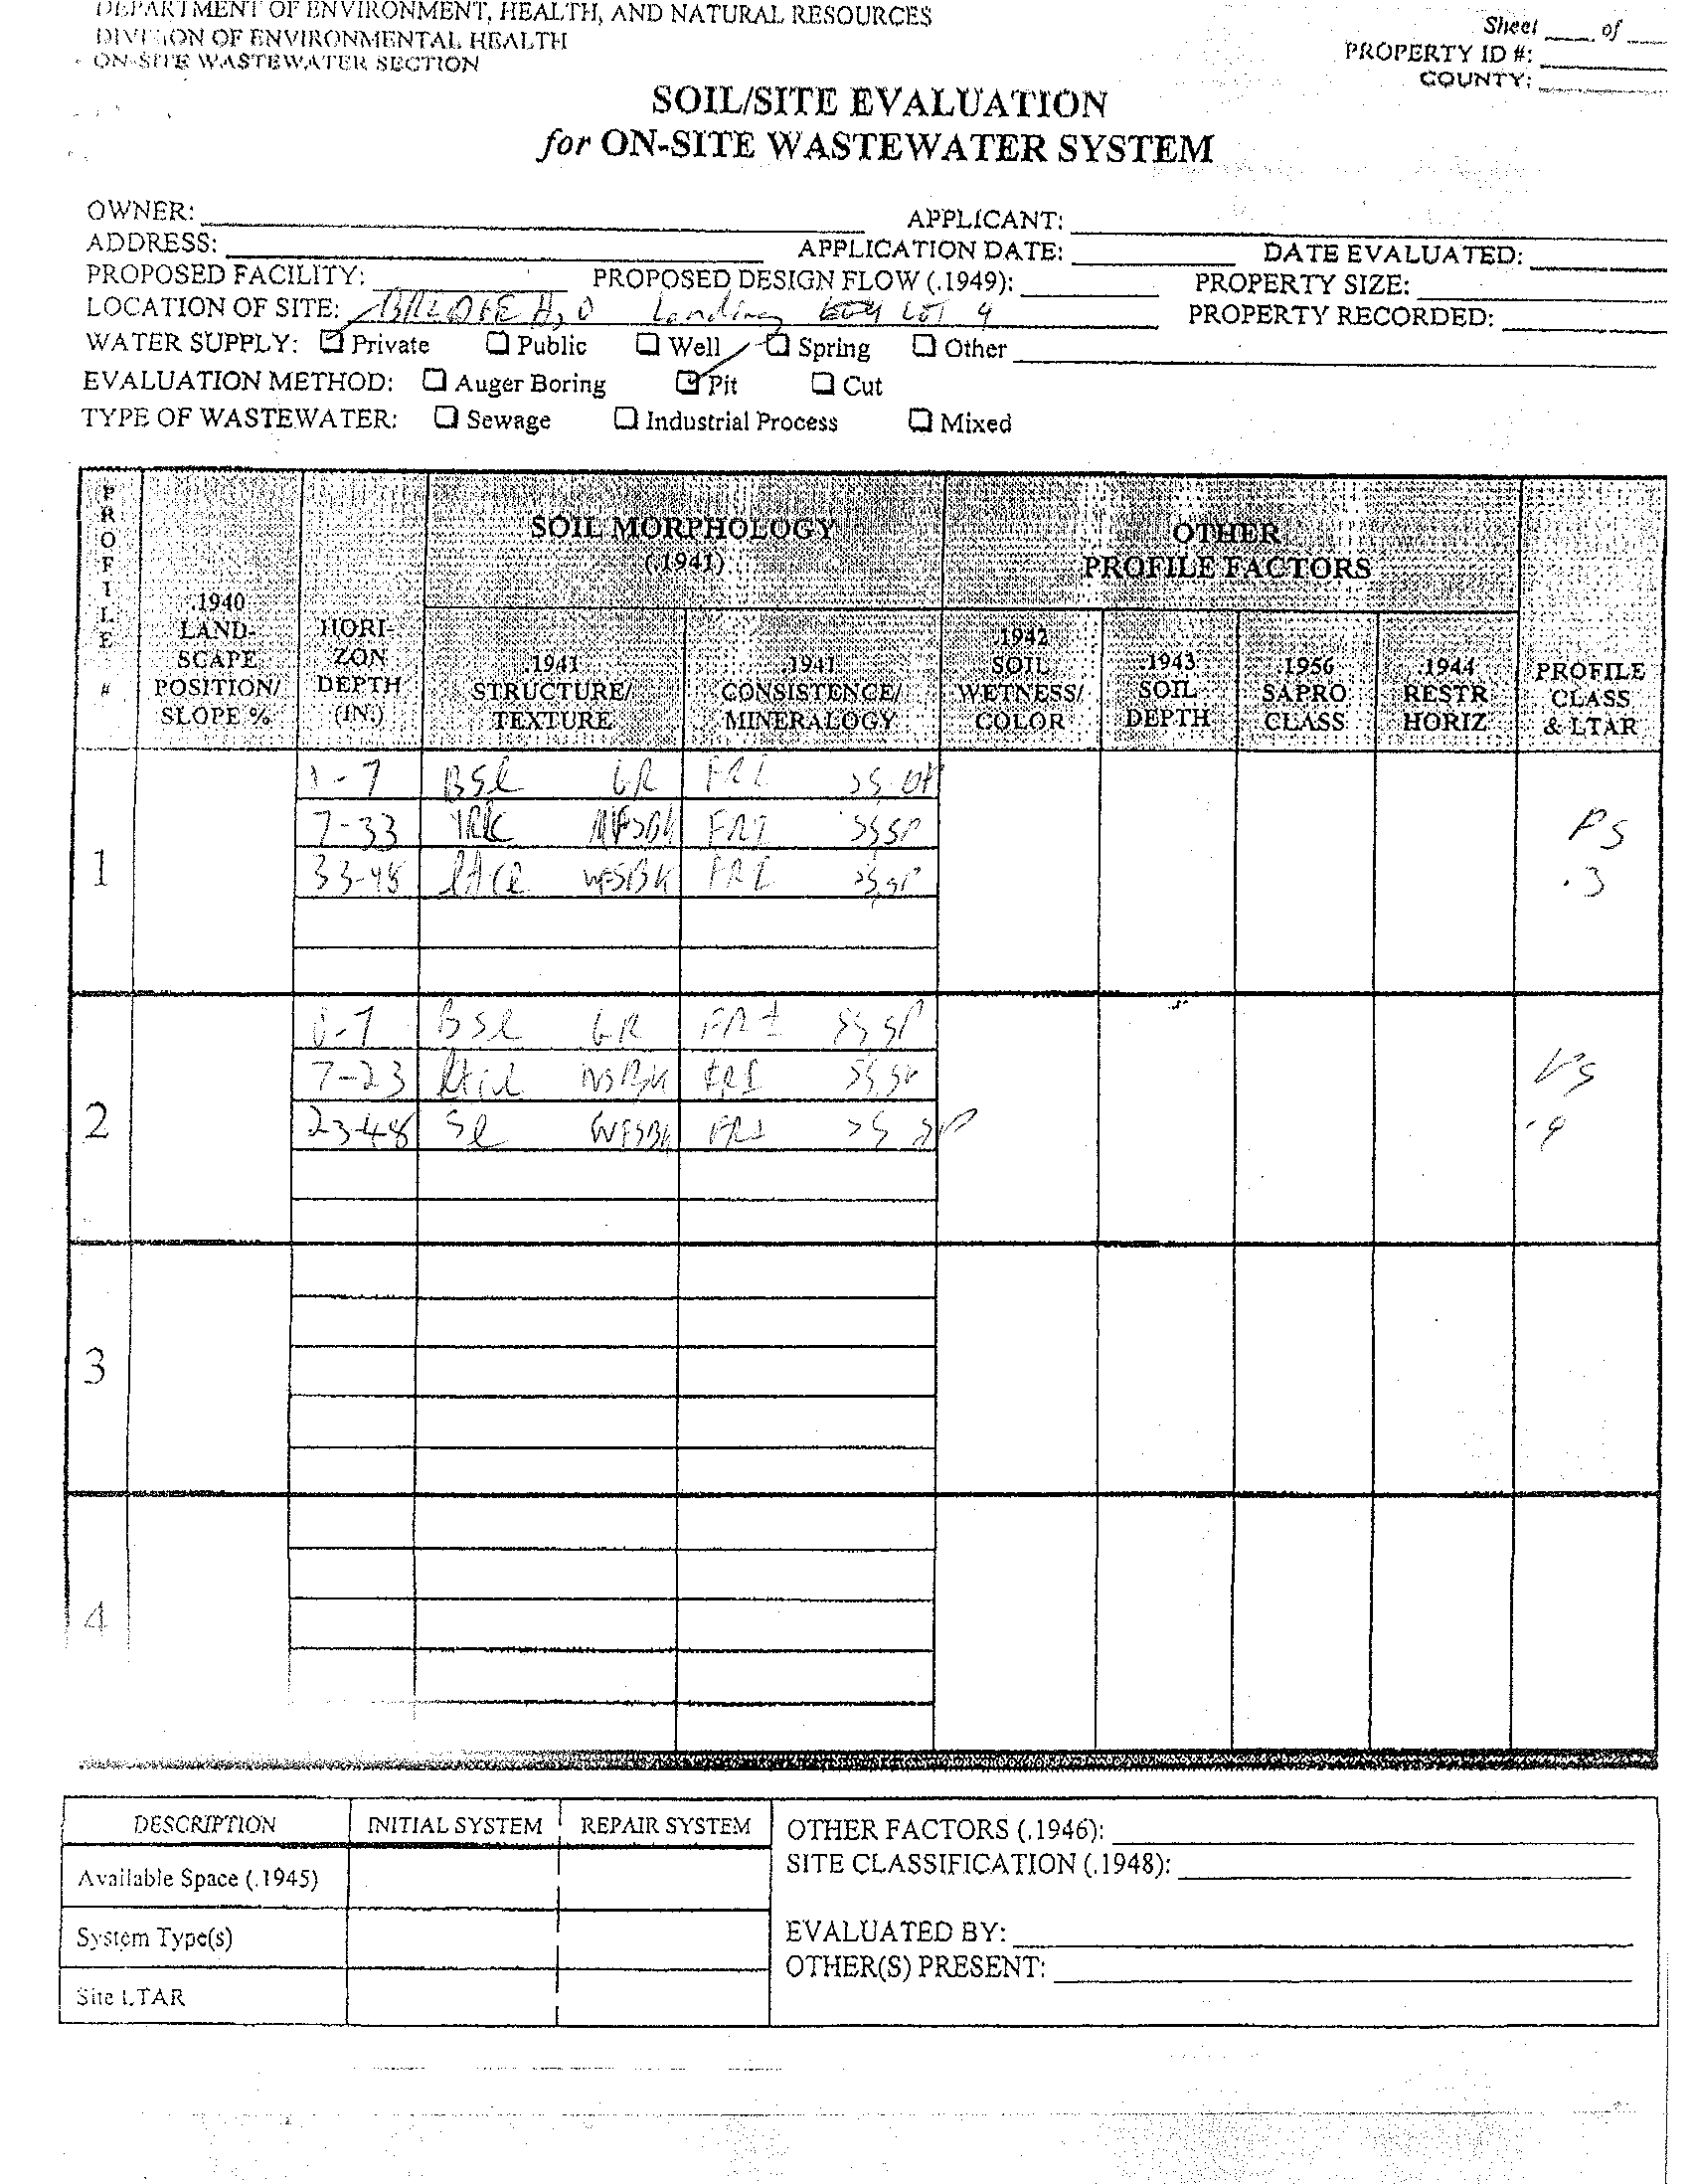 DEPARTMENT OF ENVIRONMENT, HEALTH, AND NATURAL RESOURCES
DIVISION OF ENVIRONMENTAL HEALTH
ON-SITE WASTEWATER SECTION
Sheet ____ of ____
PROPERTY ID #:
COUNTY:
SOIL/SITE EVALUATION
for ON-SITE WASTEWATER SYSTEM
OWNER:
APPLICANT:
ADDRESS:
APPLICATION DATE:
DATE EVALUATED:
PROPOSED FACILITY:
PROPOSED DESIGN FLOW (.1949):
PROPERTY SIZE:
LOCATION OF SITE: Landing LOT 4
PROPERTY RECORDED:
WATER SUPPLY: Private Public Well Spring Other
EVALUATION METHOD: Auger Boring Pit Cut
TYPE OF WASTEWATER: Sewage Industrial Process Mixed
PROFILE #
.1940 LAND-SCAPE POSITION/ SLOPE %
HORI-ZON DEPTH (IN.)
SOIL MORPHOLOGY
(.1941)
.1941 STRUCTURE/ TEXTURE
.1941 CONSISTENCE/ MINERALOGY
OTHER
PROFILE FACTORS
.1942 SOIL WETNESS/ COLOR
.1943 SOIL DEPTH
.1956 SAPRO CLASS
.1944 RESTR HORIZ
PROFILE CLASS & LTAR
1
-7 BSL GR FRI
7-33 FRI SSSP
33-48 WFSBK FRI SS,SP
PS
.3
2
0-7 BSL GR FRI SS SP
7-23 FRI SS,SP
23-48 SL WFSBK FRI SS SP
PS
3
4
DESCRIPTION INITIAL SYSTEM REPAIR SYSTEM
Available Space (.1945)
System Type(s)
Site LTAR
OTHER FACTORS (.1946):
SITE CLASSIFICATION (.1948):
EVALUATED BY:
OTHER(S) PRESENT: